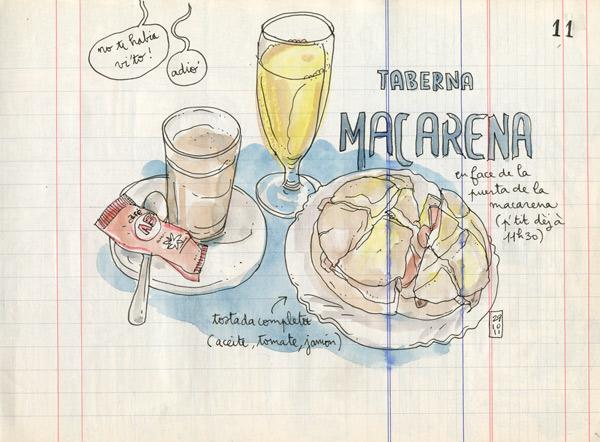 11
no ti había
vi'to!
adió'
TABERNA
MACARENA
en face de la
puerta de la
macarena
(p'tit dèj à
11h30)
tostada completa
(aceite, tomate, jamón)
29
10
11